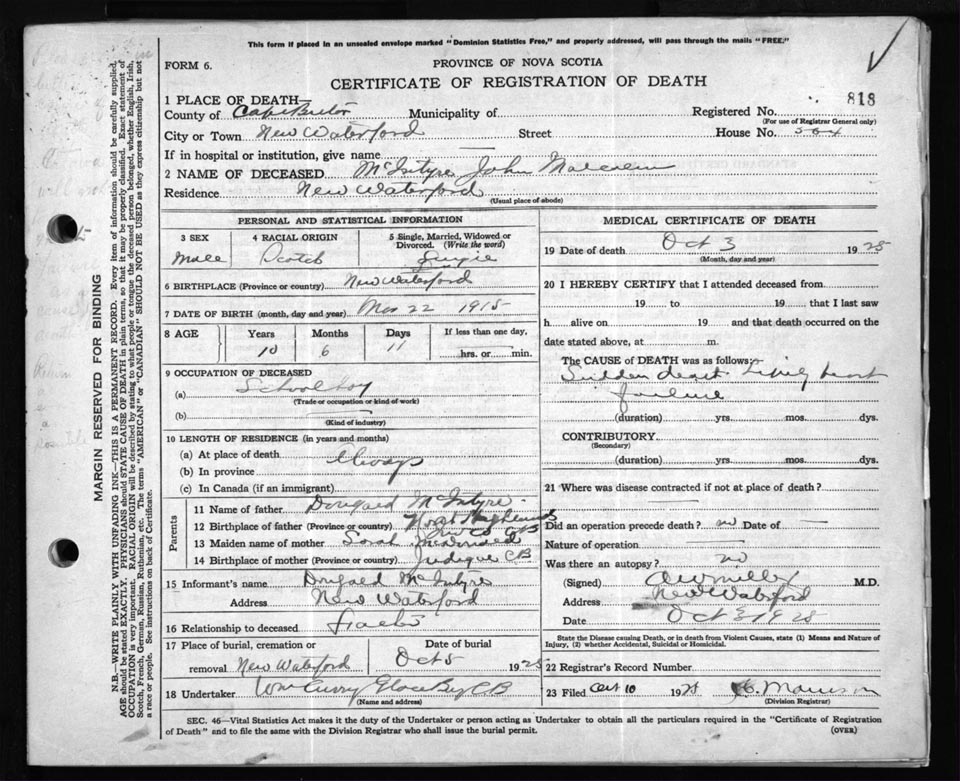 This form if placed in an unsealed envelope marked "Dominion Statistics Free," and properly addressed, will pass through the mails "FREE."
FORM 6.
PROVINCE OF NOVA SCOTIA
CERTIFICATE OF REGISTRATION OF DEATH
818
1 PLACE OF DEATH—
County of Cape Breton Municipality of Registered No.
(For use of Registrar General only)
City or Town New Waterford Street House No. 564
If in hospital or institution, give name
2 NAME OF DECEASED McIntyre John Malcolm
Residence New Waterford
(Usual place of abode)
PERSONAL AND STATISTICAL INFORMATION
3 SEX 4 RACIAL ORIGIN 5 Single, Married, Widowed or Divorced. (Write the word)
Male Scotch Single
6 BIRTHPLACE (Province or country) New Waterford
7 DATE OF BIRTH (month, day and year) Mar 22 1915
8 AGE Years Months Days If less than one day,
10 6 11 hrs. or min.
9 OCCUPATION OF DECEASED
(a) School boy
(Trade or occupation or kind of work)
(b)
(Kind of industry)
10 LENGTH OF RESIDENCE (in years and months)
(a) At place of death Always
(b) In province
(c) In Canada (if an immigrant)
Parents
11 Name of father Dougald McIntyre
12 Birthplace of father (Province or country) North Highlands Inv Co CB
13 Maiden name of mother Sarah
14 Birthplace of mother (Province or country) Judique CB
15 Informant's name Dougald McIntyre
Address New Waterford
16 Relationship to deceased Father
17 Place of burial, cremation or Date of burial
removal New Waterford Oct 5 1925
18 Undertaker Wm Curry Glace Bay CB
(Name and address)
MEDICAL CERTIFICATE OF DEATH
19 Date of death Oct 3 1925
(Month, day and year)
20 I HEREBY CERTIFY that I attended deceased from
19 to 19 that I last saw
h alive on 19 and that death occurred on the
date stated above, at m.
The CAUSE of DEATH was as follows:
Sudden death heart
failure
(duration) yrs. mos. dys.
CONTRIBUTORY
(Secondary)
(duration) yrs. mos. dys.
21 Where was disease contracted if not at place of death?
Did an operation precede death? no Date of
Nature of operation
Was there an autopsy? no
(Signed) Miller M.D.
Address New Waterford
Date Oct 3 1925
State the Disease causing Death, or in death from Violent Causes, state (1) Means and Nature of
Injury, (2) whether Accidental, Suicidal or Homicidal.
22 Registrar's Record Number
23 Filed Oct 10 1925 Morrison
(Division Registrar)
SEC. 46—Vital Statistics Act makes it the duty of the Undertaker or person acting as Undertaker to obtain all the particulars required in the "Certificate of Registration
of Death" and to file the same with the Division Registrar who shall issue the burial permit.
(OVER)
MARGIN RESERVED FOR BINDING
N.B.—WRITE PLAINLY WITH UNFADING INK—THIS IS A PERMANENT RECORD. Every item of information should be carefully supplied.
AGE should be stated EXACTLY. PHYSICIANS should STATE CAUSE OF DEATH in plain terms, so that it may be properly classified. Exact statement of
OCCUPATION is very important. RACIAL ORIGIN will be described by stating to what people or tongue the deceased person belonged, whether English, Irish,
Scotch, French, German, Russian, Ruthenian, etc. The terms "AMERICAN" or "CANADIAN" SHOULD NOT BE USED as they express citizenship but not
a race or people. See instructions on back of Certificate.